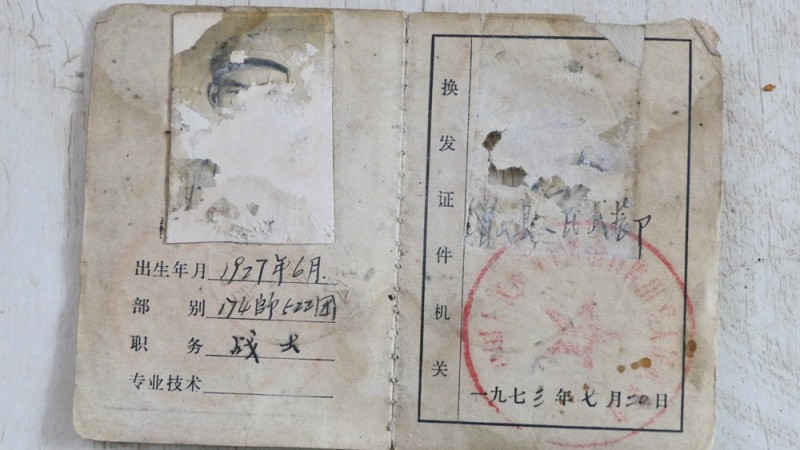 出生年月 1927年6月.
部别 174師522团
职务 战士
专业技术
换发证件机关
县人民武装部
一九七三年七月二〇日